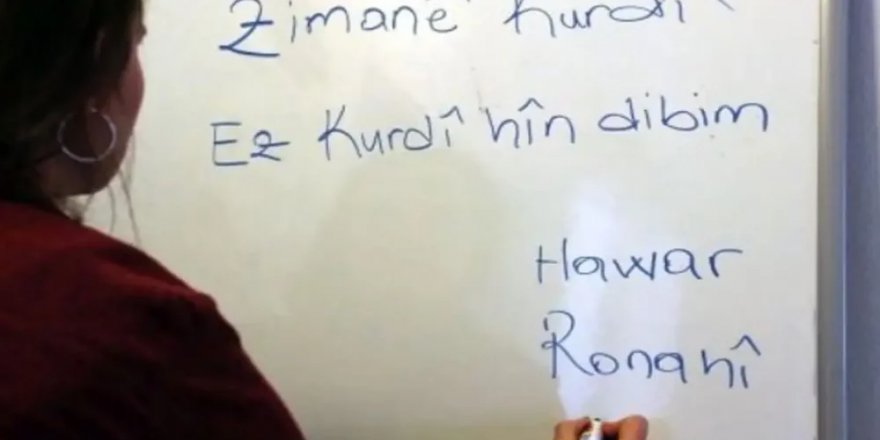 Zimanê Kurdî
Ez Kurdî hîn dibim
Hawar
Ronahî